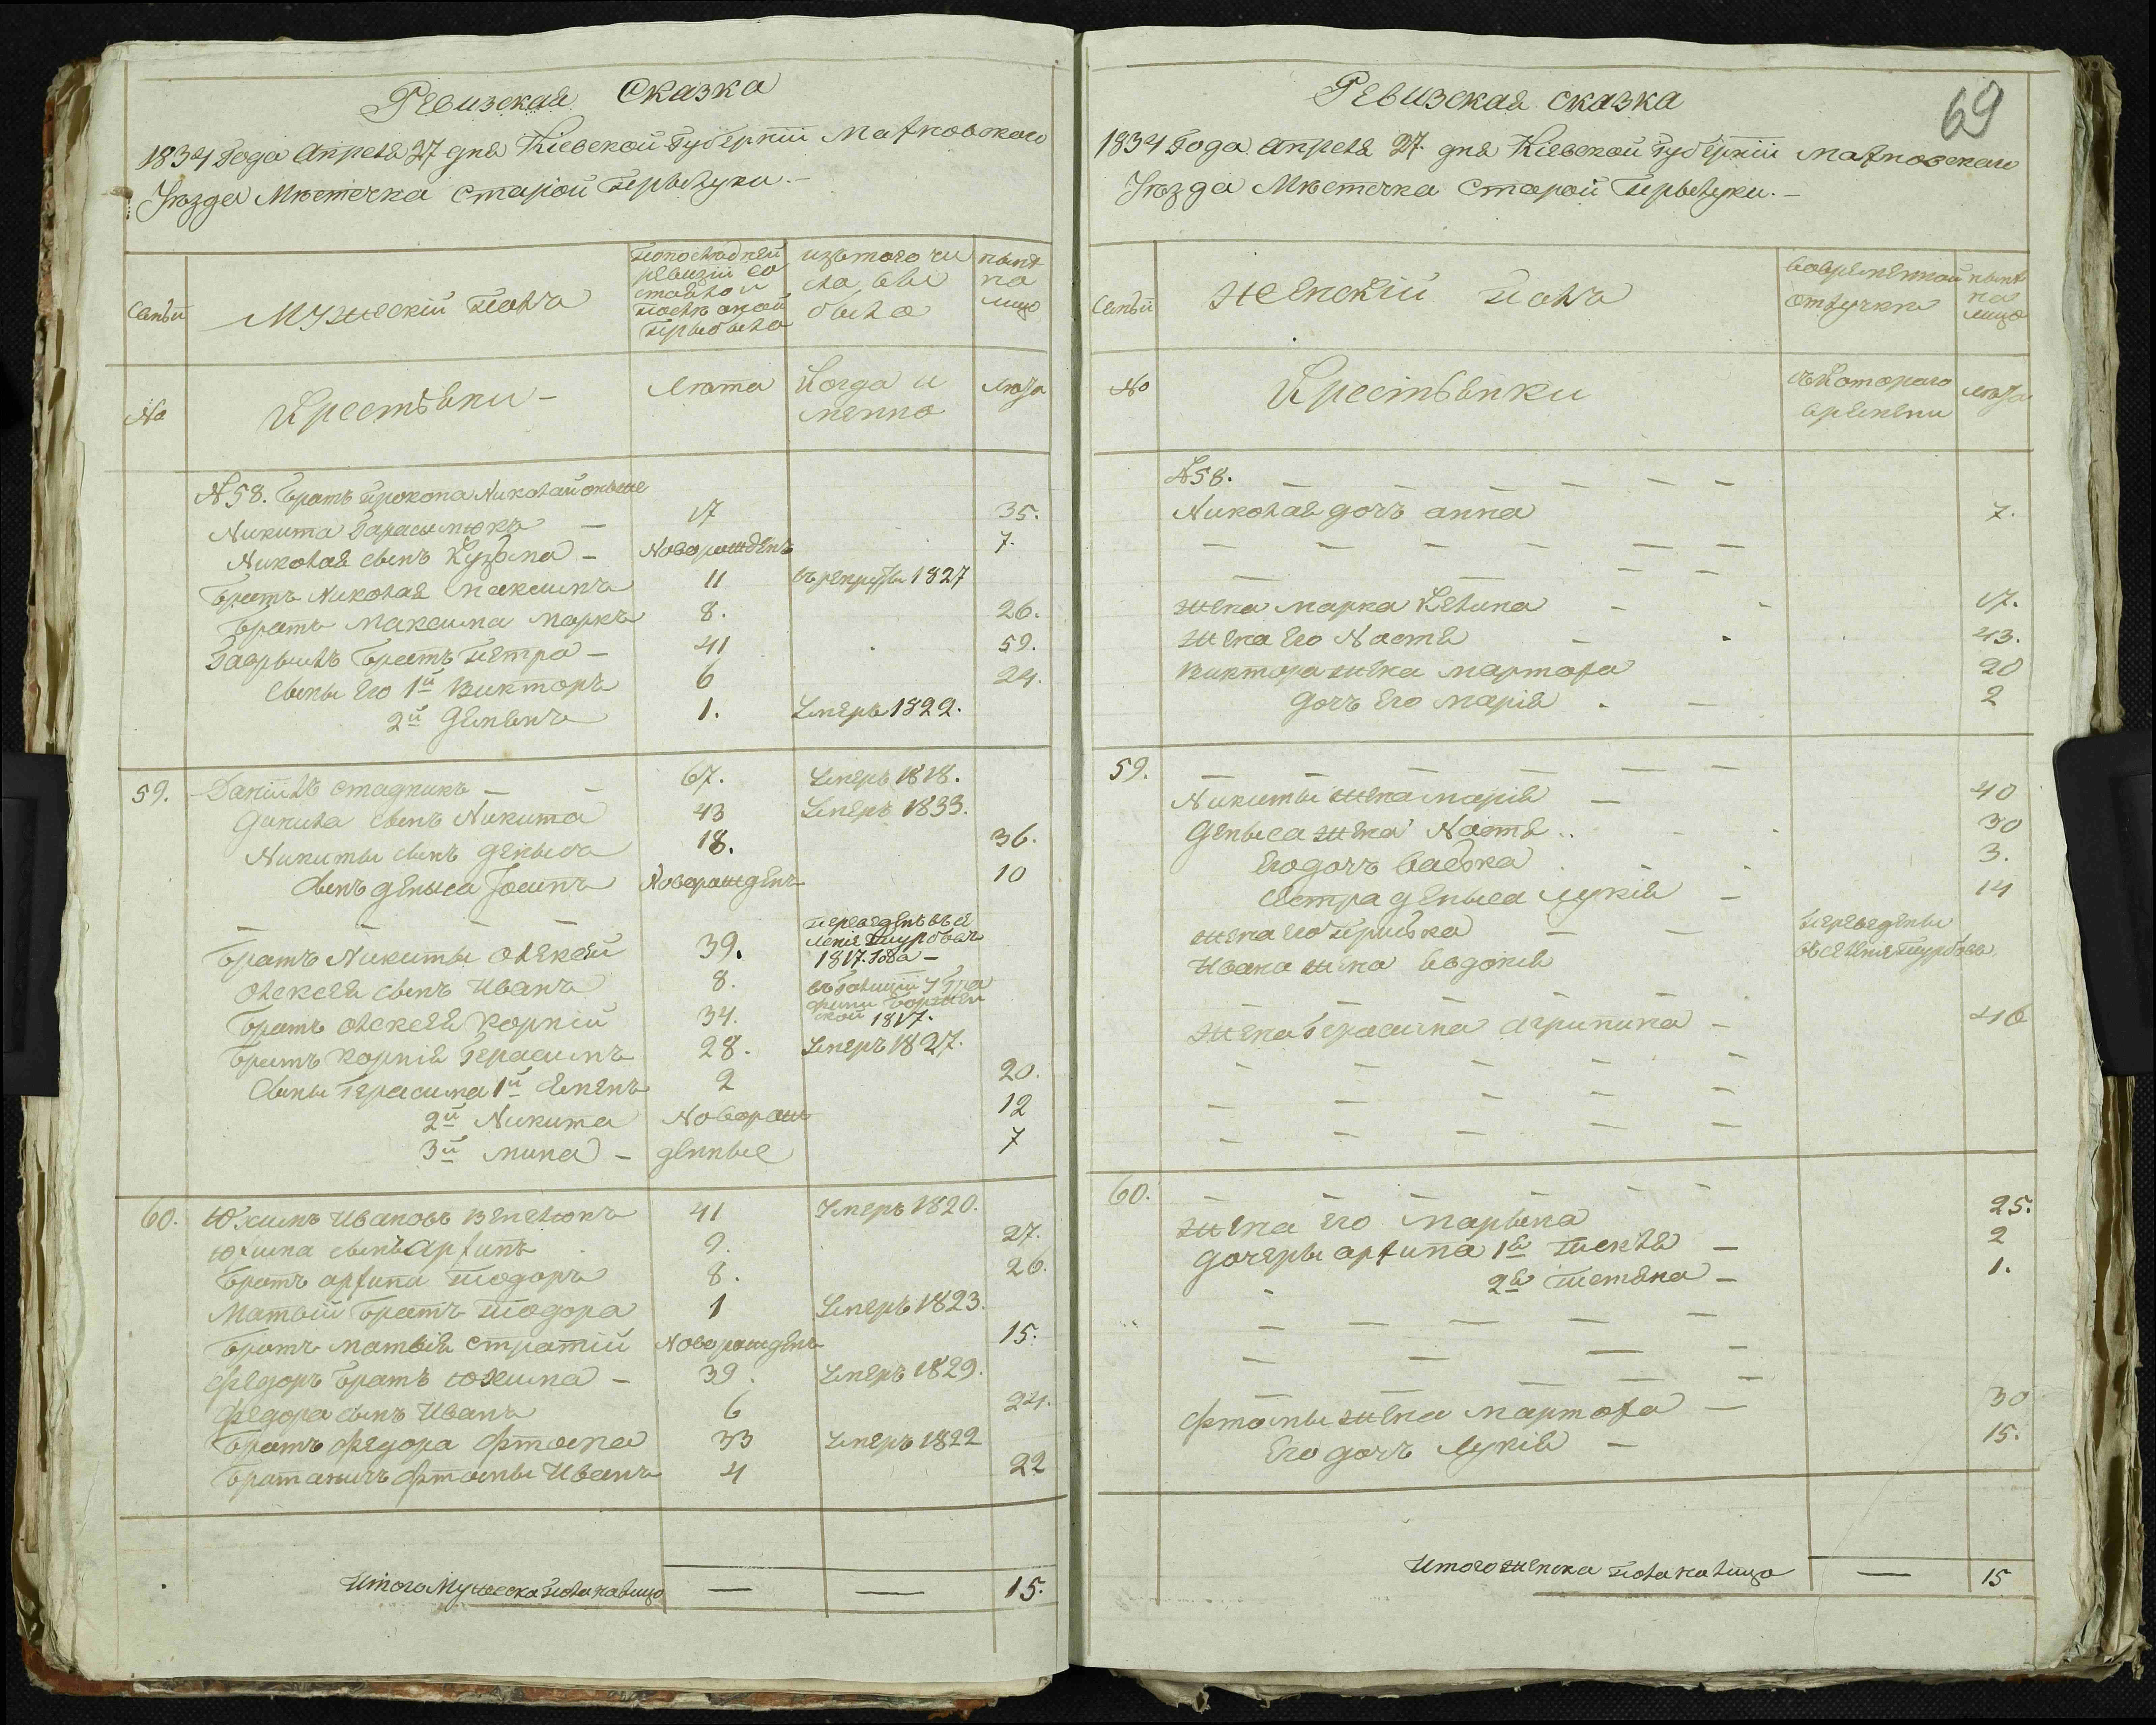 Ревизская Сказка
1834 Года Апреля 27 дня Кіевской Губерніи Махновскаго
Уѣзда Мѣстечка Старой Прылуки.–
Семьи
Мужескій полъ
По последней ревизіи состояло и послѣ оной прыбыло
изъ того числа выбыло
нынѣ на лицо
No
Крестьяни –
Лѣта
Когда именно
Лѣта
№58. Братъ Прокопа Николай онъже
Никита Гарасимюкъ – 17 35.
Николая сынъ Кузьма – Новорожденъ 7.
Братъ Николая Максимъ 11 въ рекруты 1827
Братъ Максима Маркъ 8. 26.
Гаврылъ Братъ Петра – 41 59.
Сыны его 1й Викторъ 6 24.
2й Деменъ 1. Умеръ 1822.
59. Даніилъ Стадникъ – – 67. Умеръ 1818.
Данила сынъ Никита 43 Умеръ 1833.
Никиты сынъ Денысъ 18. 36.
Сынъ Деныса Іоаимъ Новорожденъ 10
Братъ Никиты Олексей 39. Переведенъ въ селеніе Шурбовъ 1817. Года –
Олексея сынъ Иванъ 8.
Братъ Олексея Корній 34. 1817.
Братъ Корнія Герасимъ 28. Умеръ 1827.
Сыны Герасима 1й Семенъ 2 20.
2й Никита Новорож 12
3й Мина – денные 7
60. Юхимъ Ивановъ Венгlюкъ 41 Умеръ 1820.
Юхима сынъ Архипъ 9. 27.
Братъ Архипа Тодоръ 8. 26.
Матвій Братъ Тодора 1 Умеръ 1823.
Братъ Матвія Стратій Новорожденъ 15.
Федоръ Братъ Юхима – 39. Умеръ 1829.
Федора сынъ Иванъ 6 24.
Братъ Федора Фтома 33 Умеръ 1822
Братаничъ Фтомы Иванъ 4 22
Итого Мужеска Пола налицо — — 15.
69
Ревизская сказка
1834 Года Апреля 27. дня Кіевской Губерніи Махновскаго
Уѣзда Мѣстечка Старой Прылуки.–
Семьи
Женскій полъ
Во временной отлучки
нынѣ на лицо
No
Крестьянки
Съ Котораго времени
Лѣта
№58. – – – – – – –
Николая дочъ Анна 7.
– – – – – –
– – – –
Жена Марка Келина – – 17.
Жена его Настя – – 43.
Виктора жена Мартоха 20
дочъ его Марія – – 2
59. – – – – – –
Никиты жена Марія – 40
Деныса жена Настя 30
Его дочъ Васька 3.
Сестра Деныса Лукія – 14
Жена его Приська – – Переведены
Ивана жена Евдокія въ селеніе Шурбовъ
– – – – –
Жена Герасима Агрипина – 46
– – – – –
– – – – –
– – – – –
60. – – – – –
Жена его Марына 25.
Дочеры Архипа 1я Текля – 2
2я Тетяна – 1.
– – – – –
– – – –
– – – – –
Фтомы жена Мартоха – 30
Его дочъ Лукія – 15.
Итого женска пола налицо — 15